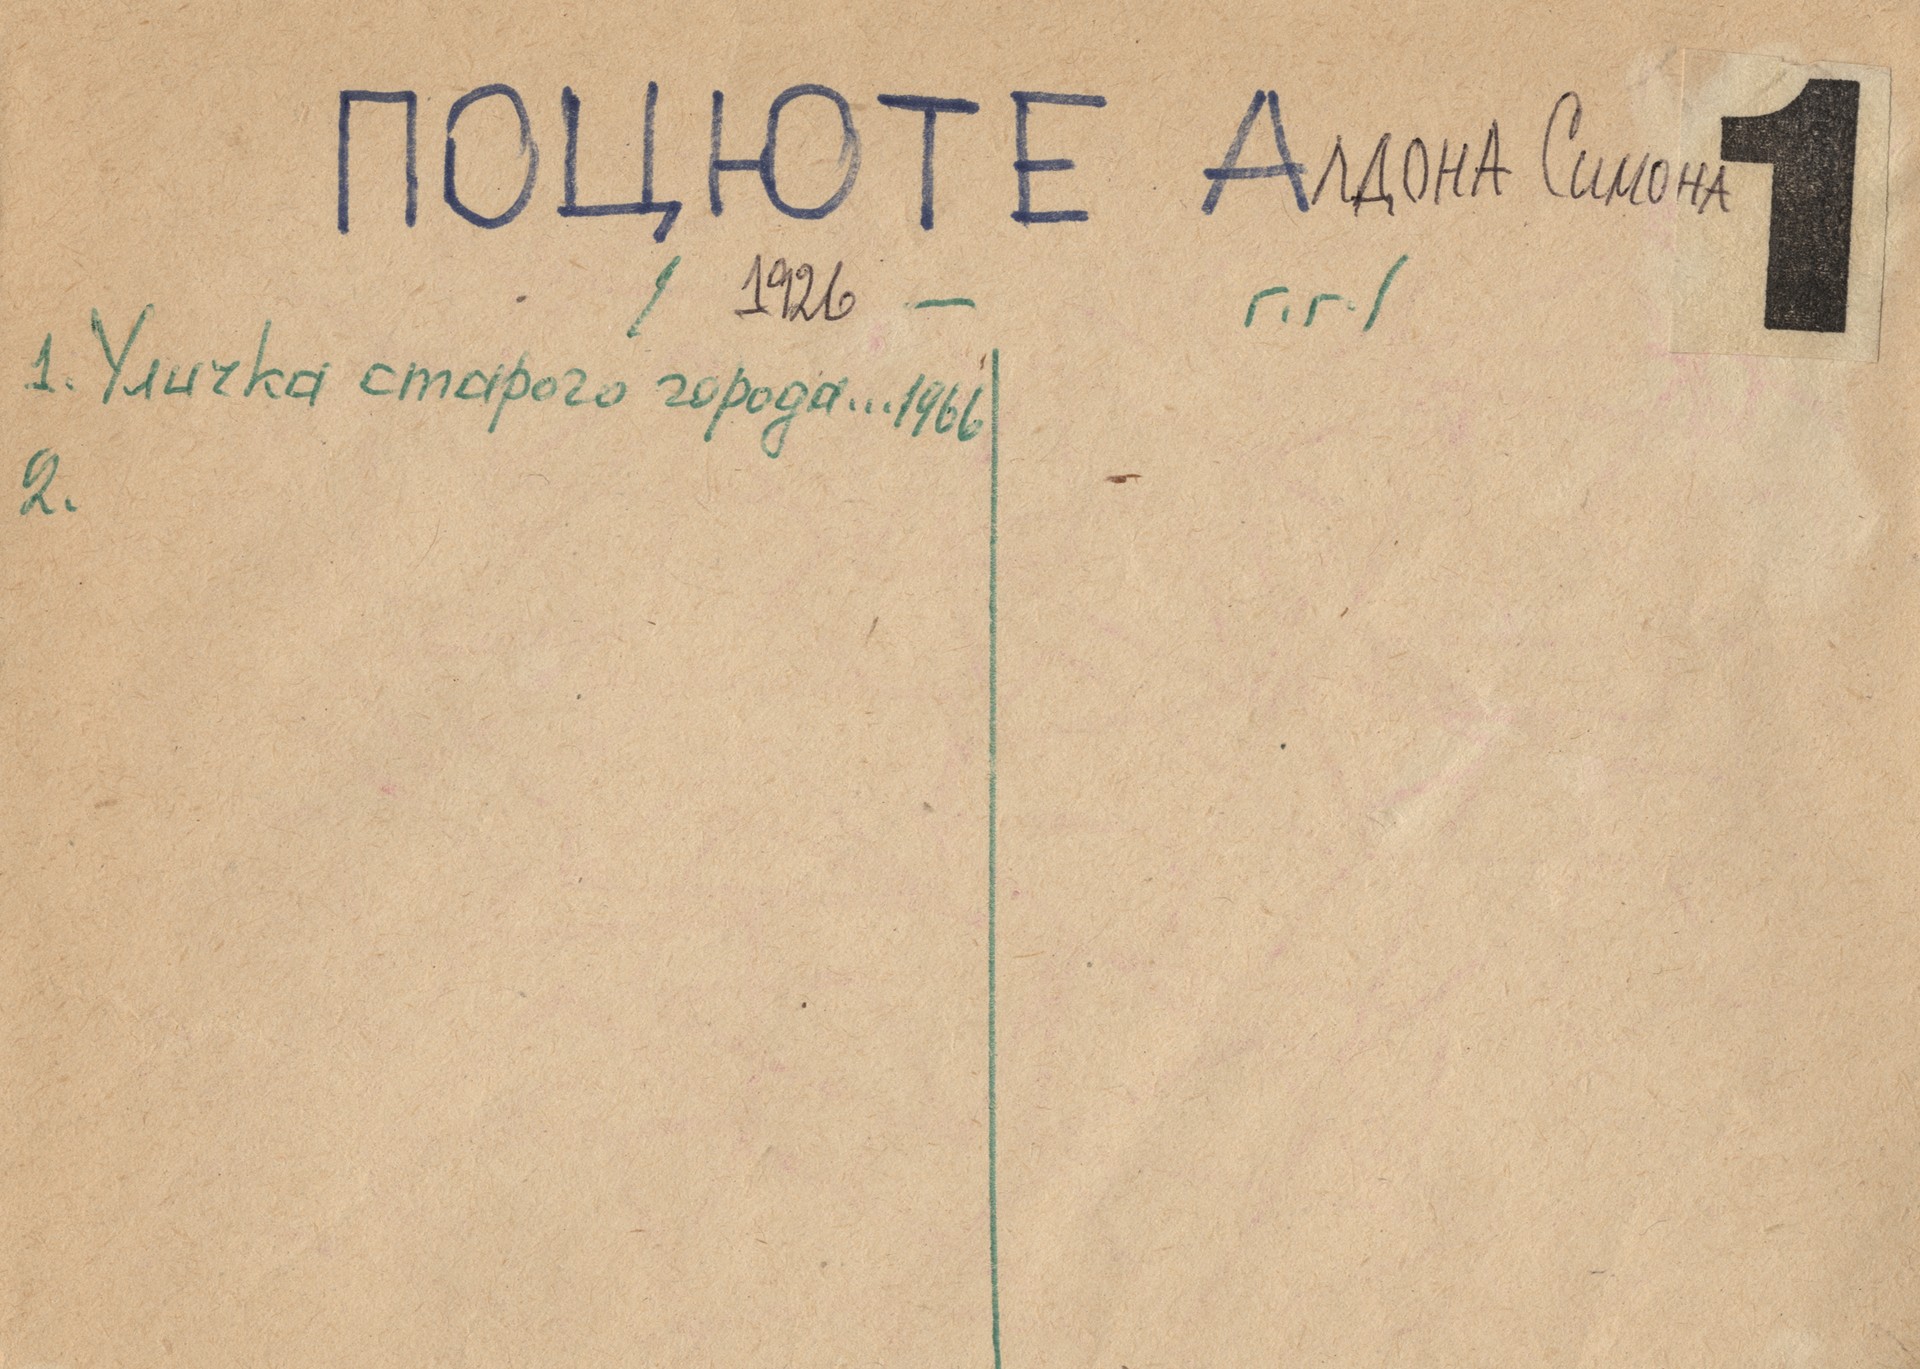 ПОЦЮТЕ АЛДОНА СИМОНА 1
/ 1926 — г.г./
1. Уличка старого города...1966
2.